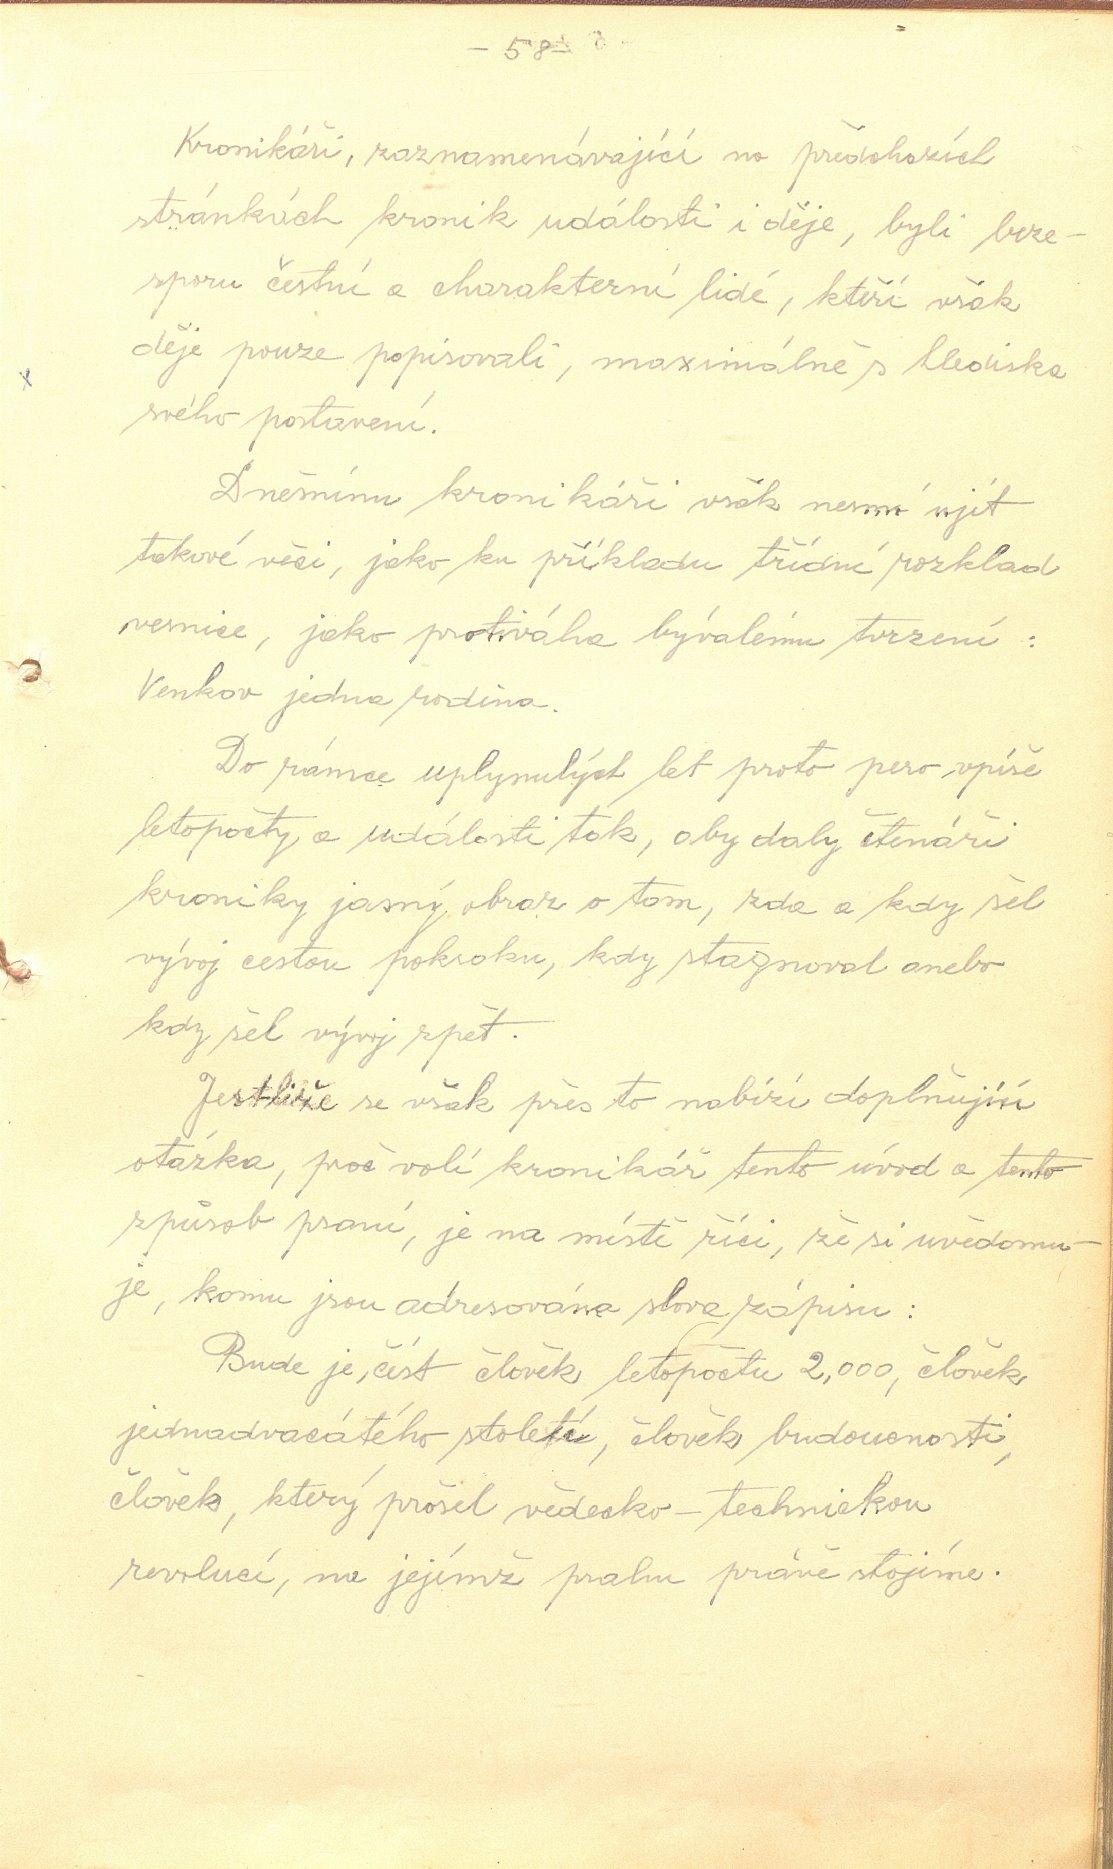 - 58 -
Kronikáři, zaznamenávající na předchozích
stránkách kronik události i děje, byli beze-
sporu čestní a charakterní lidé, kteří však
děje pouze popisovali, maximálně s hlediska
svého postavení.
Dnešnímu kronikáři však nesmí ujít
takové věci, jako ku příkladu třídní rozklad
vesnice, jako protiváha bývalému tvrzení :
Venkov jedna rodina.
Do rámce uplynulých let proto pero vpíše
letopočty a události tak, aby daly čtenáři
kroniky jasný obraz o tom, zda a kdy šel
vývoj cestou pokroku, kdy stagnoval anebo
kdy šel vývoj zpět.
Jestliže se však přes to nabízí doplňující
otázka, proč volí kronikář tento úvod a tento
způsob psaní, je na místě říci, že si uvědomu-
je, komu jsou adresována slova zápisu :
Bude je číst člověk letopočtu 2,000, člověk
jednadvacátého století, člověk budoucnosti,
člověk, který prošel vědecko-technickou
revolucí, na jejímž prahu právě stojíme.